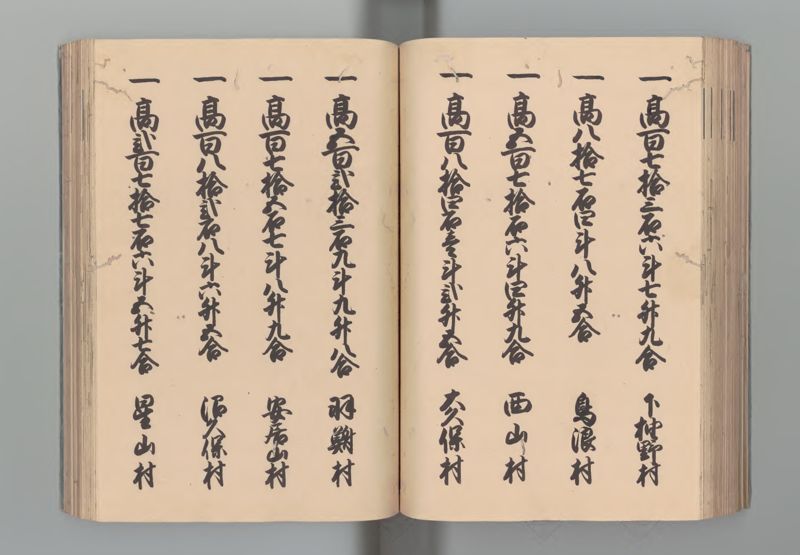 一高百七拾三石六斗七升九合 下柚野村
一高八拾七石四斗八升五合 鳥浪村
一高五百七拾石六斗四升九合 西山村
一高百八拾四石壱斗弐升五合 大久保村
一高五百弐拾三石九斗九升八合 羽鮒村
一高百七拾五石七斗八升九合 安居山村
一高百八拾弐石八斗六升五合 沼久保村
一高弐百七拾七石六斗五升七合 星山村